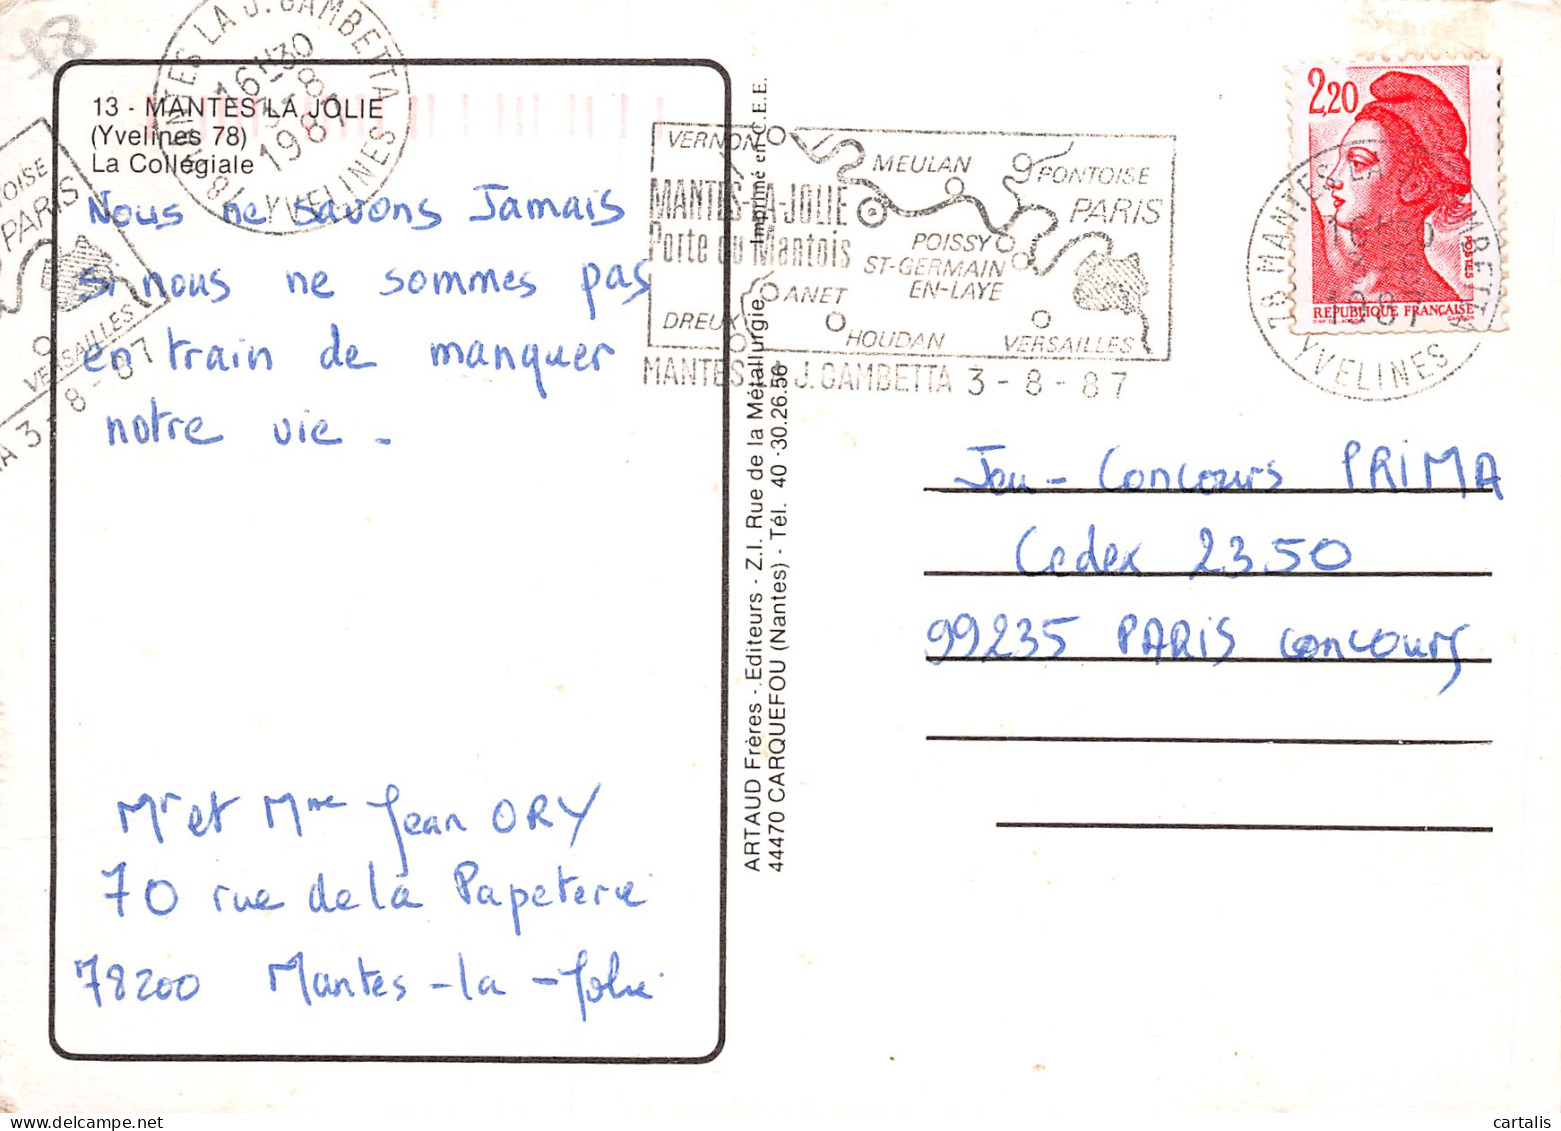 78
13 - MANTES LA JOLIE
(Yvelines 78)
La Collégiale
78 MANTES LA J. GAMBETTA
16H30
3-8
1987
YVELINES
PARIS
VERSAILLES
3-8-87
Nous ne savons Jamais
si nous ne sommes pas
en train de manquer
notre vie -
Mr et Mme Jean ORY
70 rue de la Papeterie
78200 Mantes-la-Jolie
ARTAUD Frères - Editeurs - Z.I. Rue de la Métallurgie
44470 CARQUEFOU (Nantes) - Tél. 40 ·30.26.56
Imprimé en C.E.E.
VERNON
MEULAN
PONTOISE
MANTES-LA-JOLIE
PARIS
Porte du Mantois
POISSY
ST-GERMAIN
EN-LAYE
ANET
DREUX
HOUDAN
VERSAILLES
MANTES LA J. GAMBETTA 3-8-87
2,20
POSTES
REPUBLIQUE FRANÇAISE
78 MANTES LA J. GAMBETTA
16H30
3-8
1987
YVELINES
Jeu-Concours PRIMA
Cedex 2350
99235 PARIS Concours
cartalis